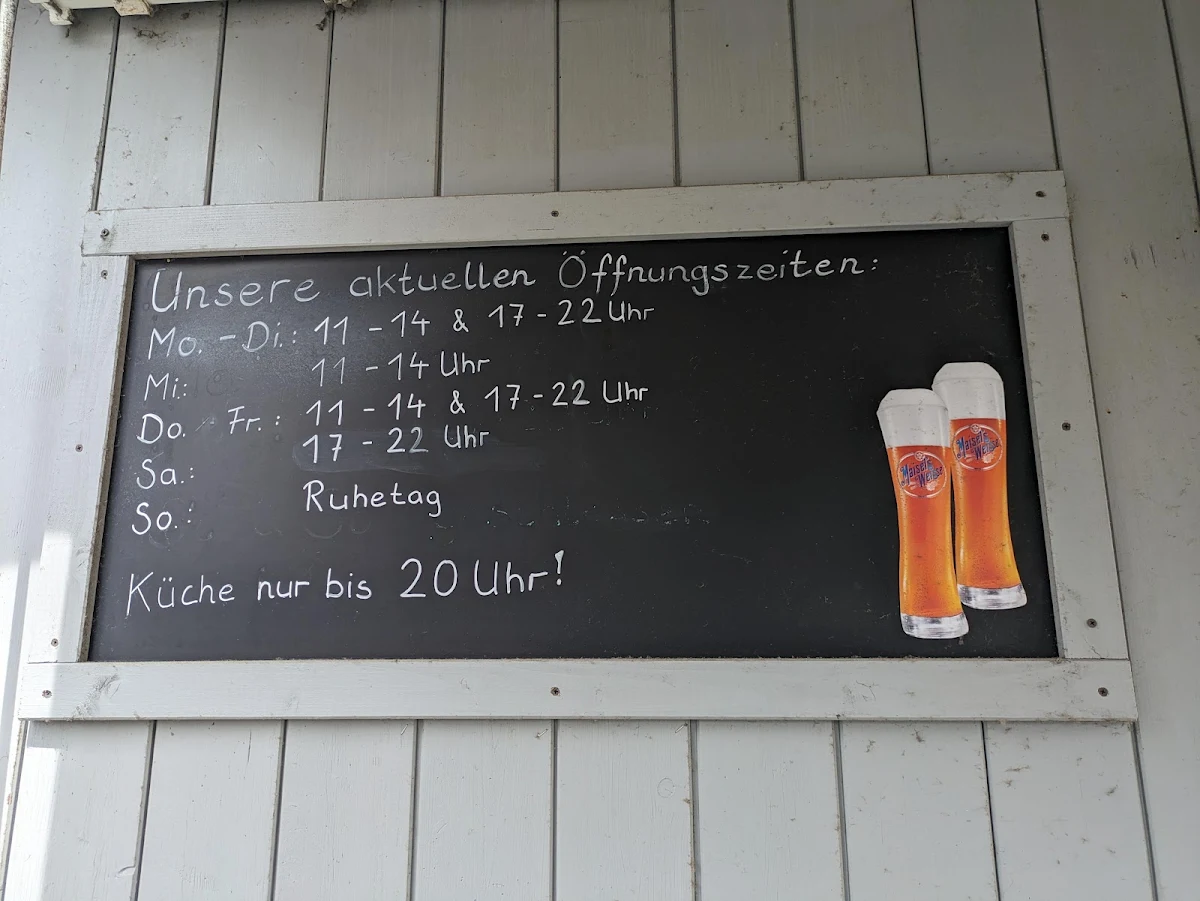 Unsere aktuellen Öffnungszeiten:
Mo. - Di.: 11 - 14 & 17 - 22 Uhr
Mi.: 11 - 14 Uhr
Do. - Fr.: 11 - 14 & 17 - 22 Uhr
Sa.: 17 - 22 Uhr
So.: Ruhetag
Küche nur bis 20 Uhr!
Maisel's
Weisse
Maisel's
Weisse